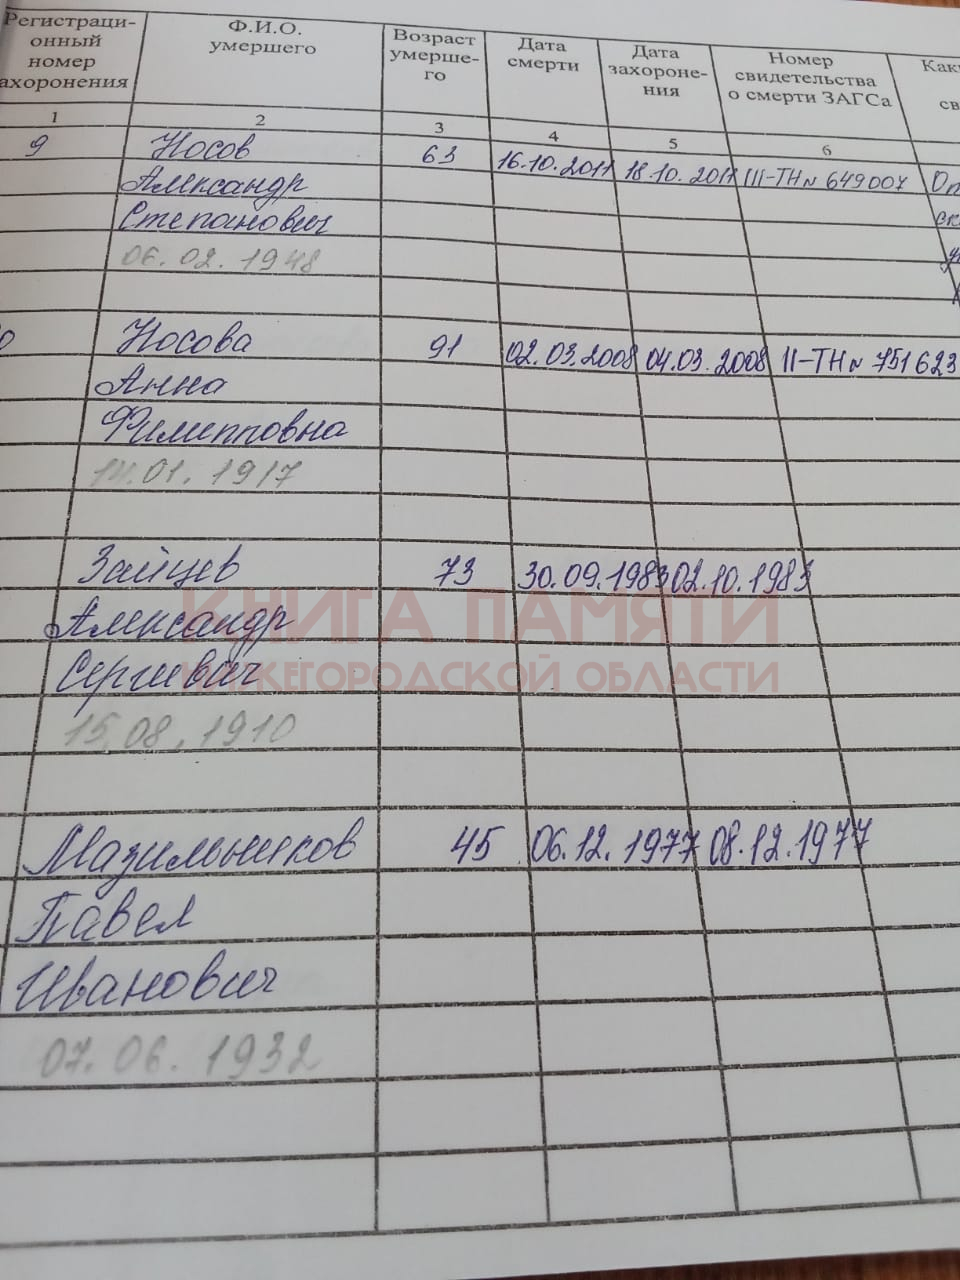 Регистраци- Ф.И.О. Возраст Дата Дата Номер
онный умершего умерше- смерти захороне- свидетельства
номер го ния о смерти ЗАГСа
ахоронения
1 2 3 4 5 6
9 Носов 63 16.10.2011 18.10.2011 III-ТН № 649007
Александр
Степанович
06.02.1948
Носова 91 02.03.2008 04.03.2008 II-ТН № 751623
Анна
Филипповна
14.01.1917
Зайцев 73 30.09.1983 02.10.1983
КНИГА ПАМЯТИ
Александр
НИЖЕГОРОДСКОЙ ОБЛАСТИ
Сергеевич
15.08.1910
Мазильников 45 06.12.1977 08.12.1977
Павел
Иванович
07.06.1932